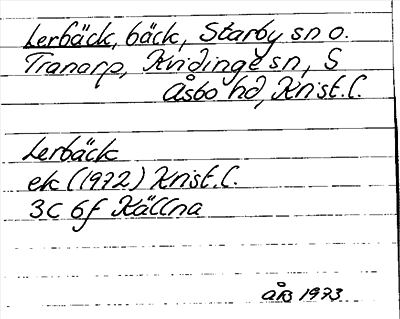 Lerbäck, bäck, Starby sn o.
Tranarp, Kvidinge sn, S
Åsbo hd, Krist.l.
Lerbäck
ek (1972) Krist.l.
3C 6f Källna
ÅB 1973